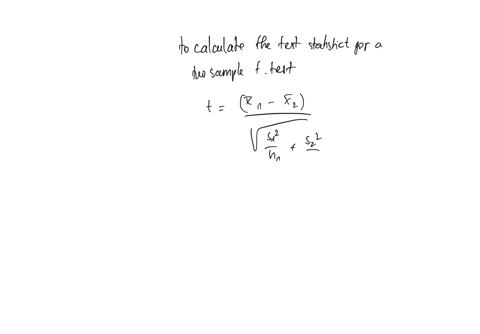 to calculate the test statistict for a
two sample t.test
t = (x̄₁ - x̄₂)
√ s₁² / n₁ + s₂²